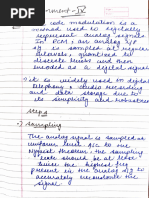 nment - IV
code modulation is a
method used to digitally
represent analog signals
In PCM, an analog S/g
is sampled at regular
intervals, quantized to
discrete levels and then
encoded as a digital signal
-> it is widely used in digital
telephone & audio recording
and data storage due to
its simplicity and robustness
Steps
Sampling
The analog signal is sampled at
uniform time A/c to the
nyquist theorem the sampling
rate should be at least
twice the highest freq
present in the analog S/g to
accurately reconstruct the
signal